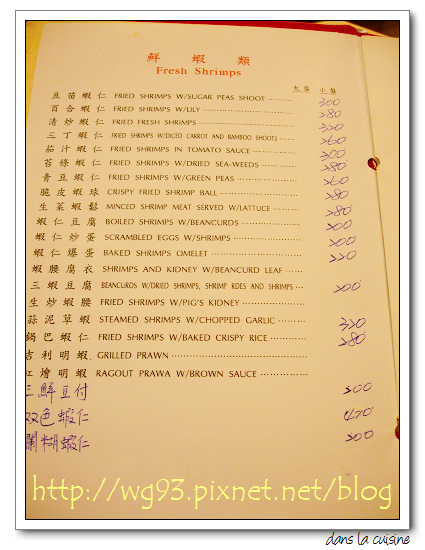 鮮蝦類
Fresh Shrimps
大盤 小盤
豆苗蝦仁 FRIED SHRIMPS W/SUGAR PEAS SHOOT ......... 300
百合蝦仁 FRIED SHRIMPS W/LILY ......... 280
清炒蝦仁 FRIED FRESH SHRIMPS ......... 320
三丁蝦仁 FRIED SHRIMPS W/DICED CARROT AND BAMBOO SHOOTS ..... 260
茄汁蝦仁 FRIED SHRIMPS IN TOMATO SAUCE ......... 200
苔條蝦仁 FRIED SHRIMPS W/DRIED SEA-WEEDS ......... 280
青豆蝦仁 FRIED SHRIMPS W/GREEN PEAS ......... 260
脆皮蝦球 CRISPY FRIED SHRIMP BALL ......... 280
生菜蝦鬆 MINCED SHRIMP MEAT SERVED W/LATTUCE ......... 280
蝦仁豆腐 BOILED SHRIMPS W/BEANCURDS ......... 200
蝦仁炒蛋 SCRAMBLED EGGS W/SHRIMPS ......... 200
蝦仁爆蛋 BAKED SHRIMPS OMELET ......... 220
蝦腰腐衣 SHRIMPS AND KIDNEY W/BEANCURD LEAF ......
三蝦豆腐 BEANCURDS W/DRIED SHRIMPS, SHRIMP RDES AND SHRIMPS ... 200
生炒蝦腰 FRIED SHRIMPS W/PIG'S KIDNEY .........
蒜泥草蝦 STEAMED SHRIMPS W/CHOPPED GARLIC ......... 320
鍋巴蝦仁 FRIED SHRIMPS W/BAKED CRISPY RICE ......... 280
吉利明蝦 GRILLED PRAWN .........
紅燴明蝦 RAGOUT PRAWA W/BROWN SAUCE .........
三鮮豆付 200
双色蝦仁 420
蘭糊蝦仁 200
http://wg93.pixnet.net/blog
dans la cuisine